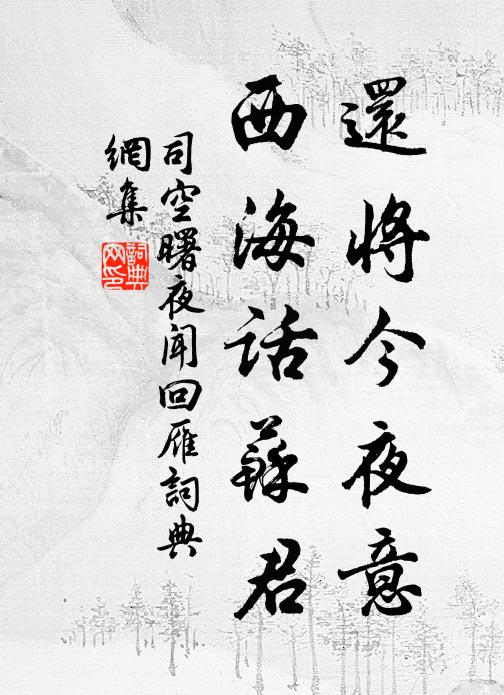 還將今夜意
西海話蘇君
司空曙夜聞回雁詞典
網集
詞典網印